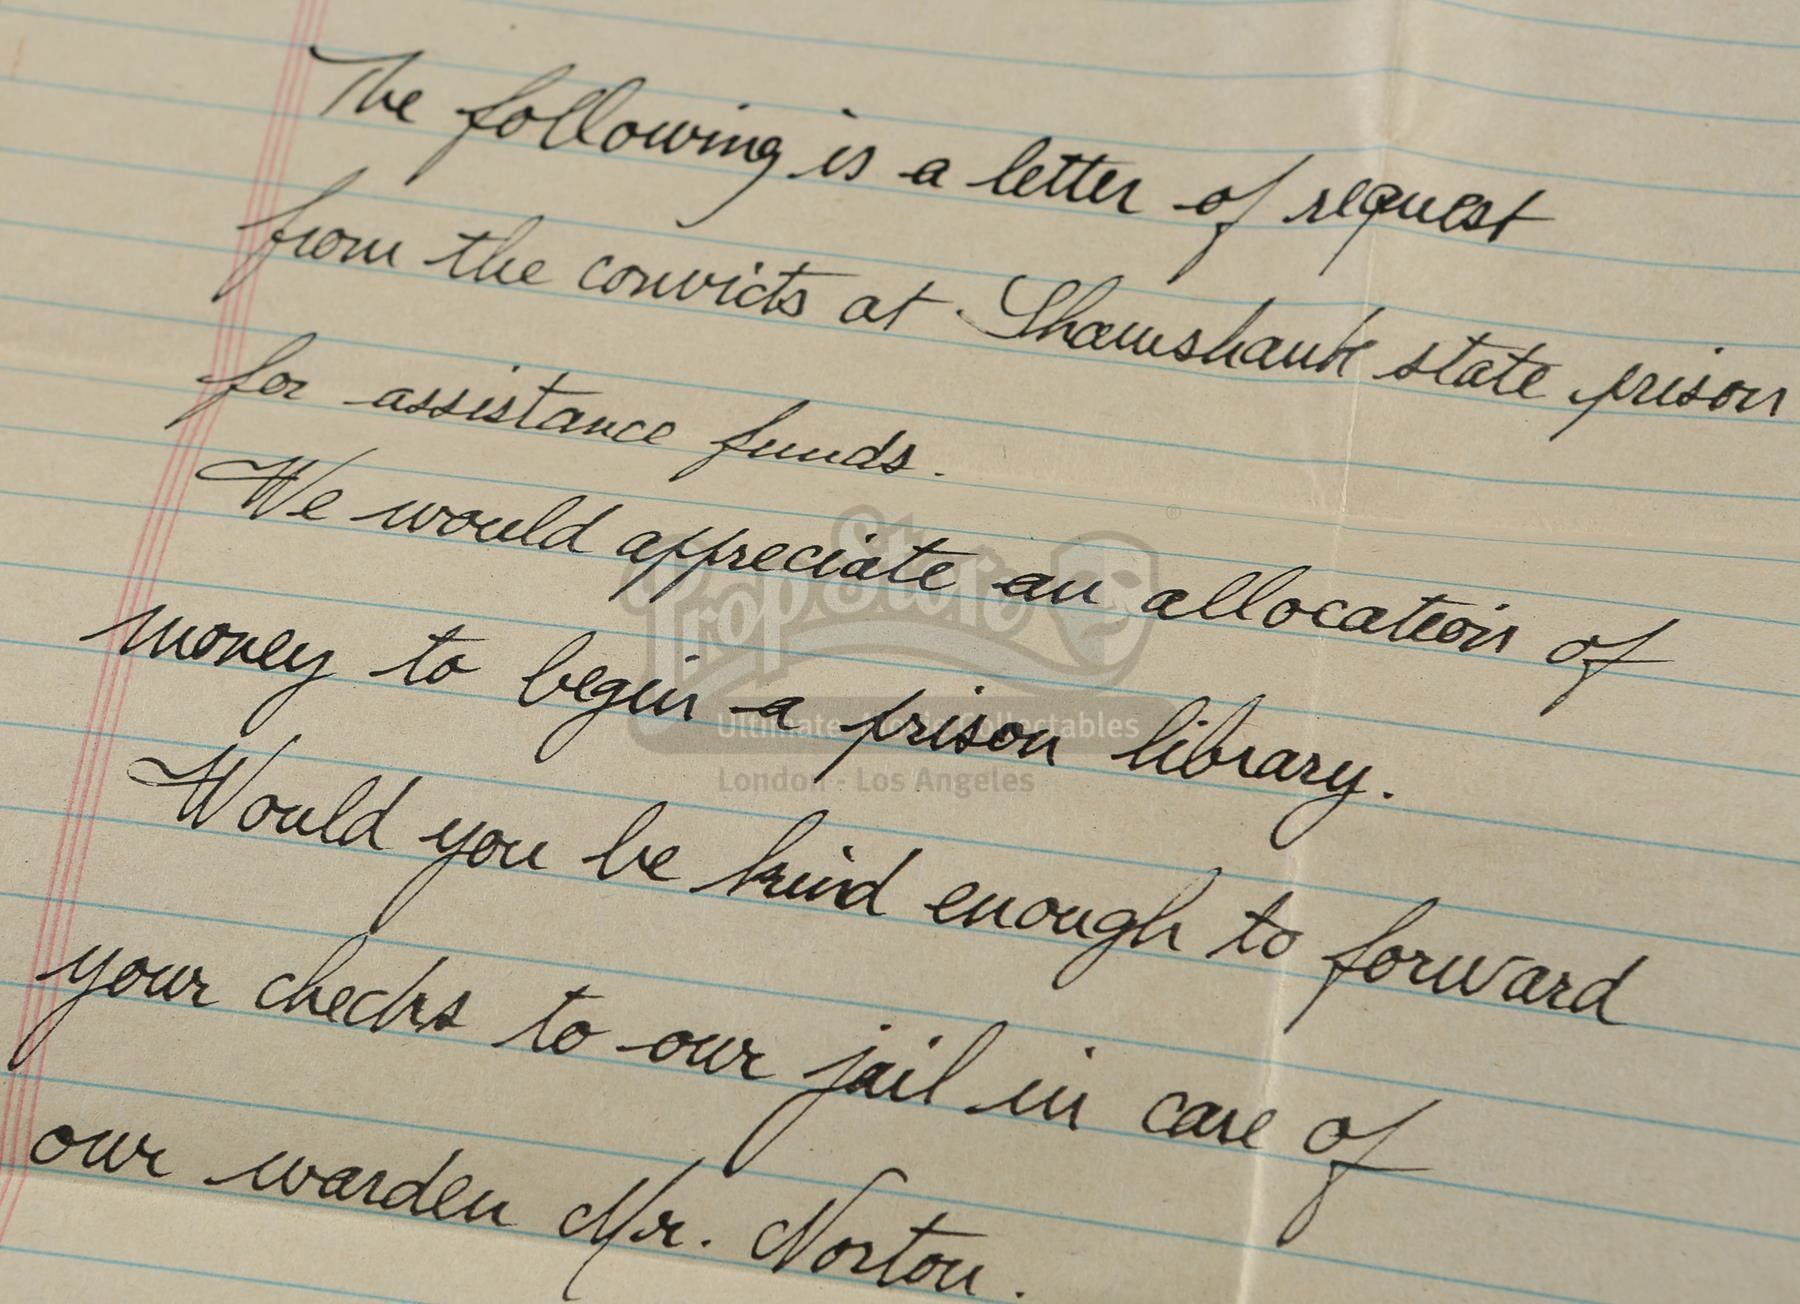 The following is a letter of request
from the convicts at Shawshank state prison
for assistance funds.
We would appreciate an allocation of
money to begin a prison library.
Would you be kind enough to forward
your checks to our jail in care of
our warden Mr. Norton.
PropStore®
Ultimate Movie Collectables
London - Los Angeles